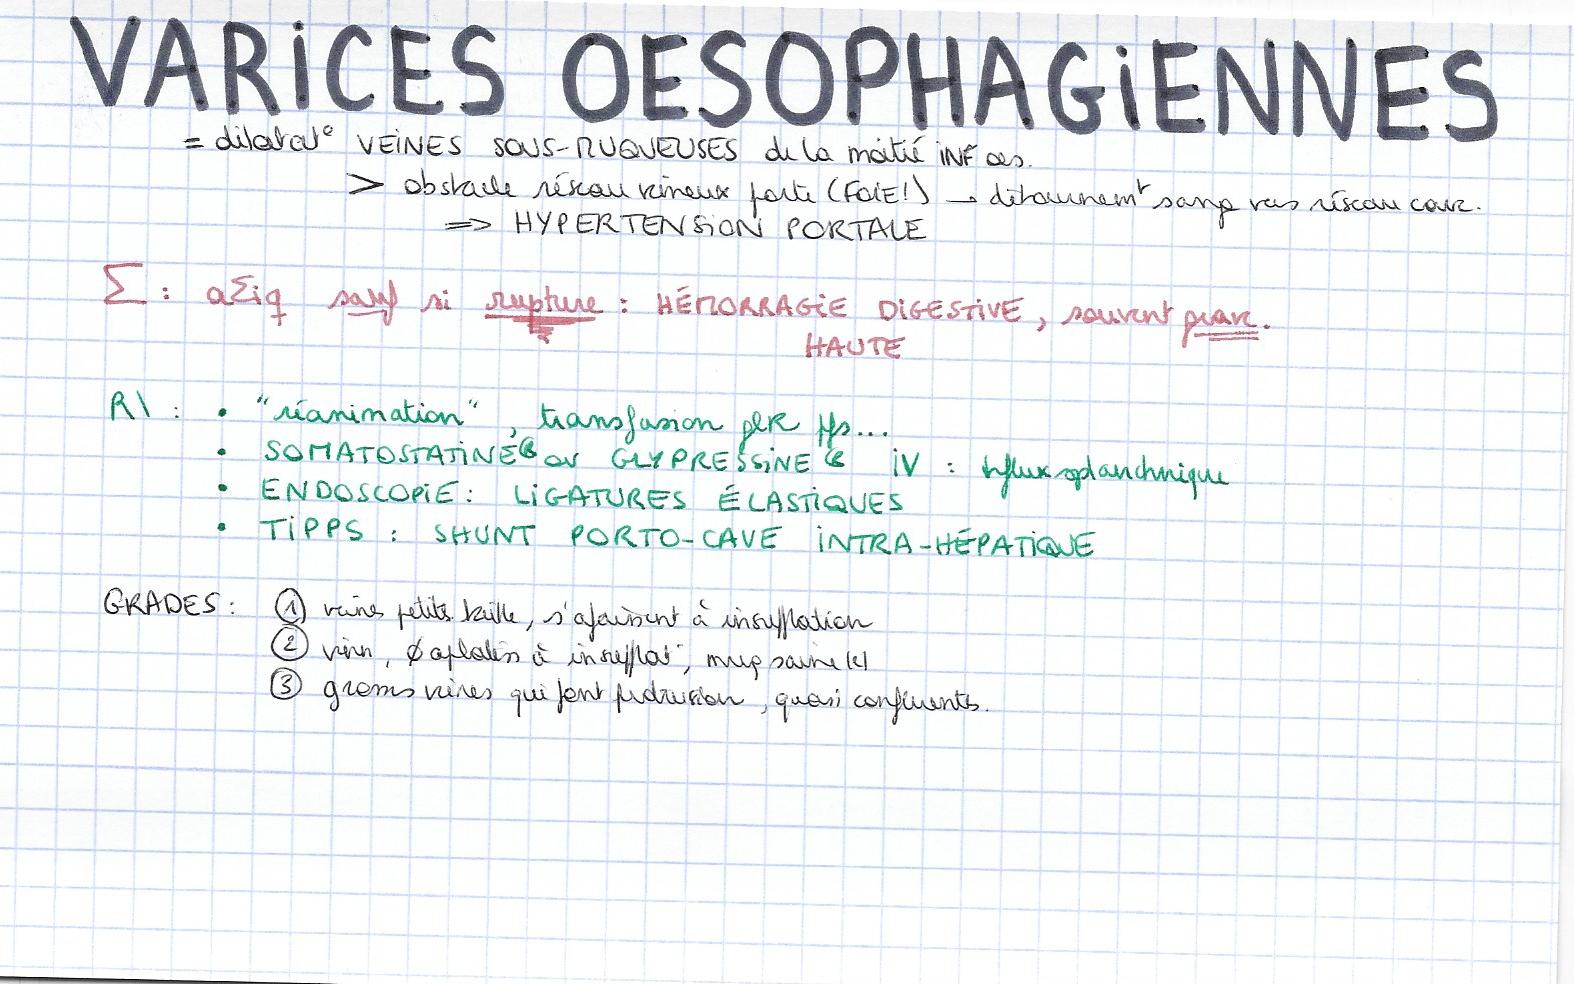 VARiCES OESOPHAGiENNES
= dilatat° VEiNES SOUS-MUQUEUSES de la moitié iNF oes.
> obstacle réseau veineux porte (FOiE!) → détournemt sang vers réseau cave.
=> HYPERTENSiON PORTALE
Σ : aΣiq sauf si rupture : HÉMORRAGiE DiGESTiVE, souvent grave.
HAUTE
R\ : • "réanimation", transfusion plK pfs...
• SOMATOSTATiNE® ou GLYPRESSiNE® iV : ↓ flux splanchnique
• ENDOSCOPiE : LiGATURES ÉLASTiQUES
• TiPPS : SHUNT PORTO-CAVE iNTRA-HÉPATiQUE
GRADES : ① veines petite taille, s'afaissent à insufflation
② , ø aplaties à insufflat°, muq saine
③ grosses veines qui font protrusion, quasi confluentes.